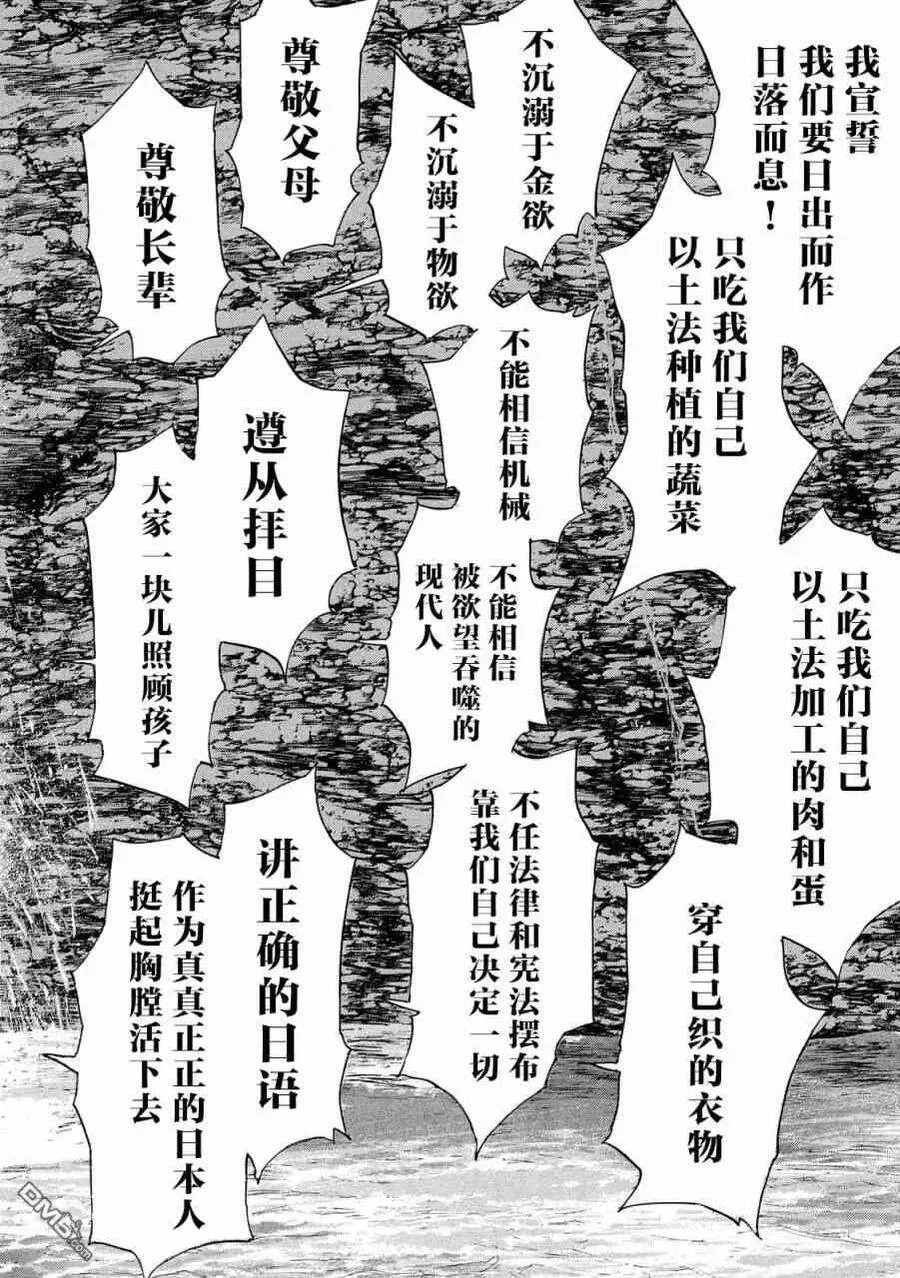 我宣誓
我们要日出而作
日落而息！
只吃我们自己
以土法种植的蔬菜
只吃我们自己
以土法加工的肉和蛋
穿自己织的衣物
不沉溺于金欲
不沉溺于物欲
不能相信机械
不能相信
被欲望吞噬的
现代人
不任法律和宪法摆布
靠我们自己决定一切
尊敬父母
尊敬长辈
遵从拝目
大家一块儿照顾孩子
讲正确的日语
作为真真正正的日本人
挺起胸膛活下去
DM5